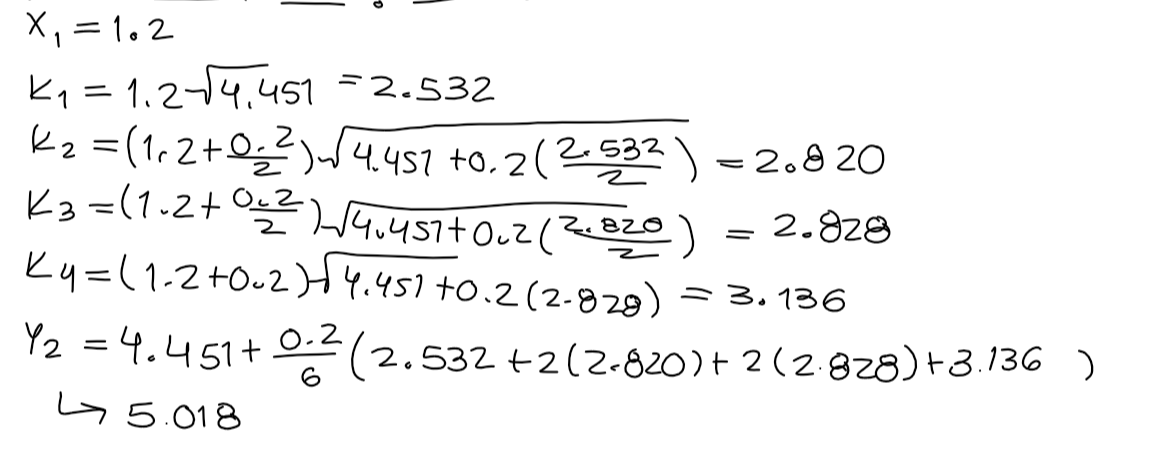 X₁ = 1.2
K₁ = 1.2√4.451 = 2.532
K₂ = (1.2+0.2/2)√4.451+0.2(2.532/2) = 2.820
K₃ = (1.2+0.2/2)√4.451+0.2(2.820/2) = 2.828
K₄ = (1.2+0.2)√4.451+0.2(2.828) = 3.136
Y₂ = 4.451+0.2/6(2.532+2(2.820)+2(2.828)+3.136)
↳ 5.018